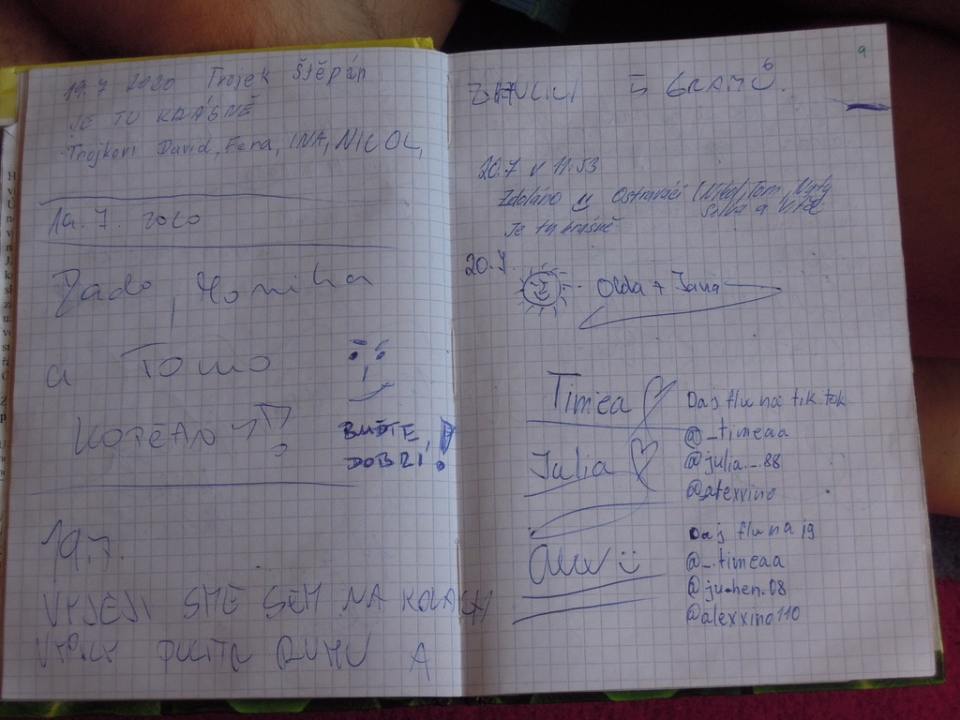 19.7 2020 Trojek Štěpán
JE TU KRÁSNĚ
Trojkovi David, Fena, INA, NICOL,
19.7. 2020
Rado, Monika
a Tomo
KOTEAD
BUĎTE
DOBRI!
19.7.
VYJELI SME SEM NA KOLACH
VYPILY PULITR RUMU A
9
5 GRAMŮ.
20.7 v 11.53
Zdoláno Ostraváci
Je tu krásně
20.7.
Olda + Jana
Timea
Daj flw na tik tok
@_timeaa
Julia
@julia._.88
@alexxino
Daj flw na ig
Alex
@_.timeaa
@ju.hen.08
@alexxino110